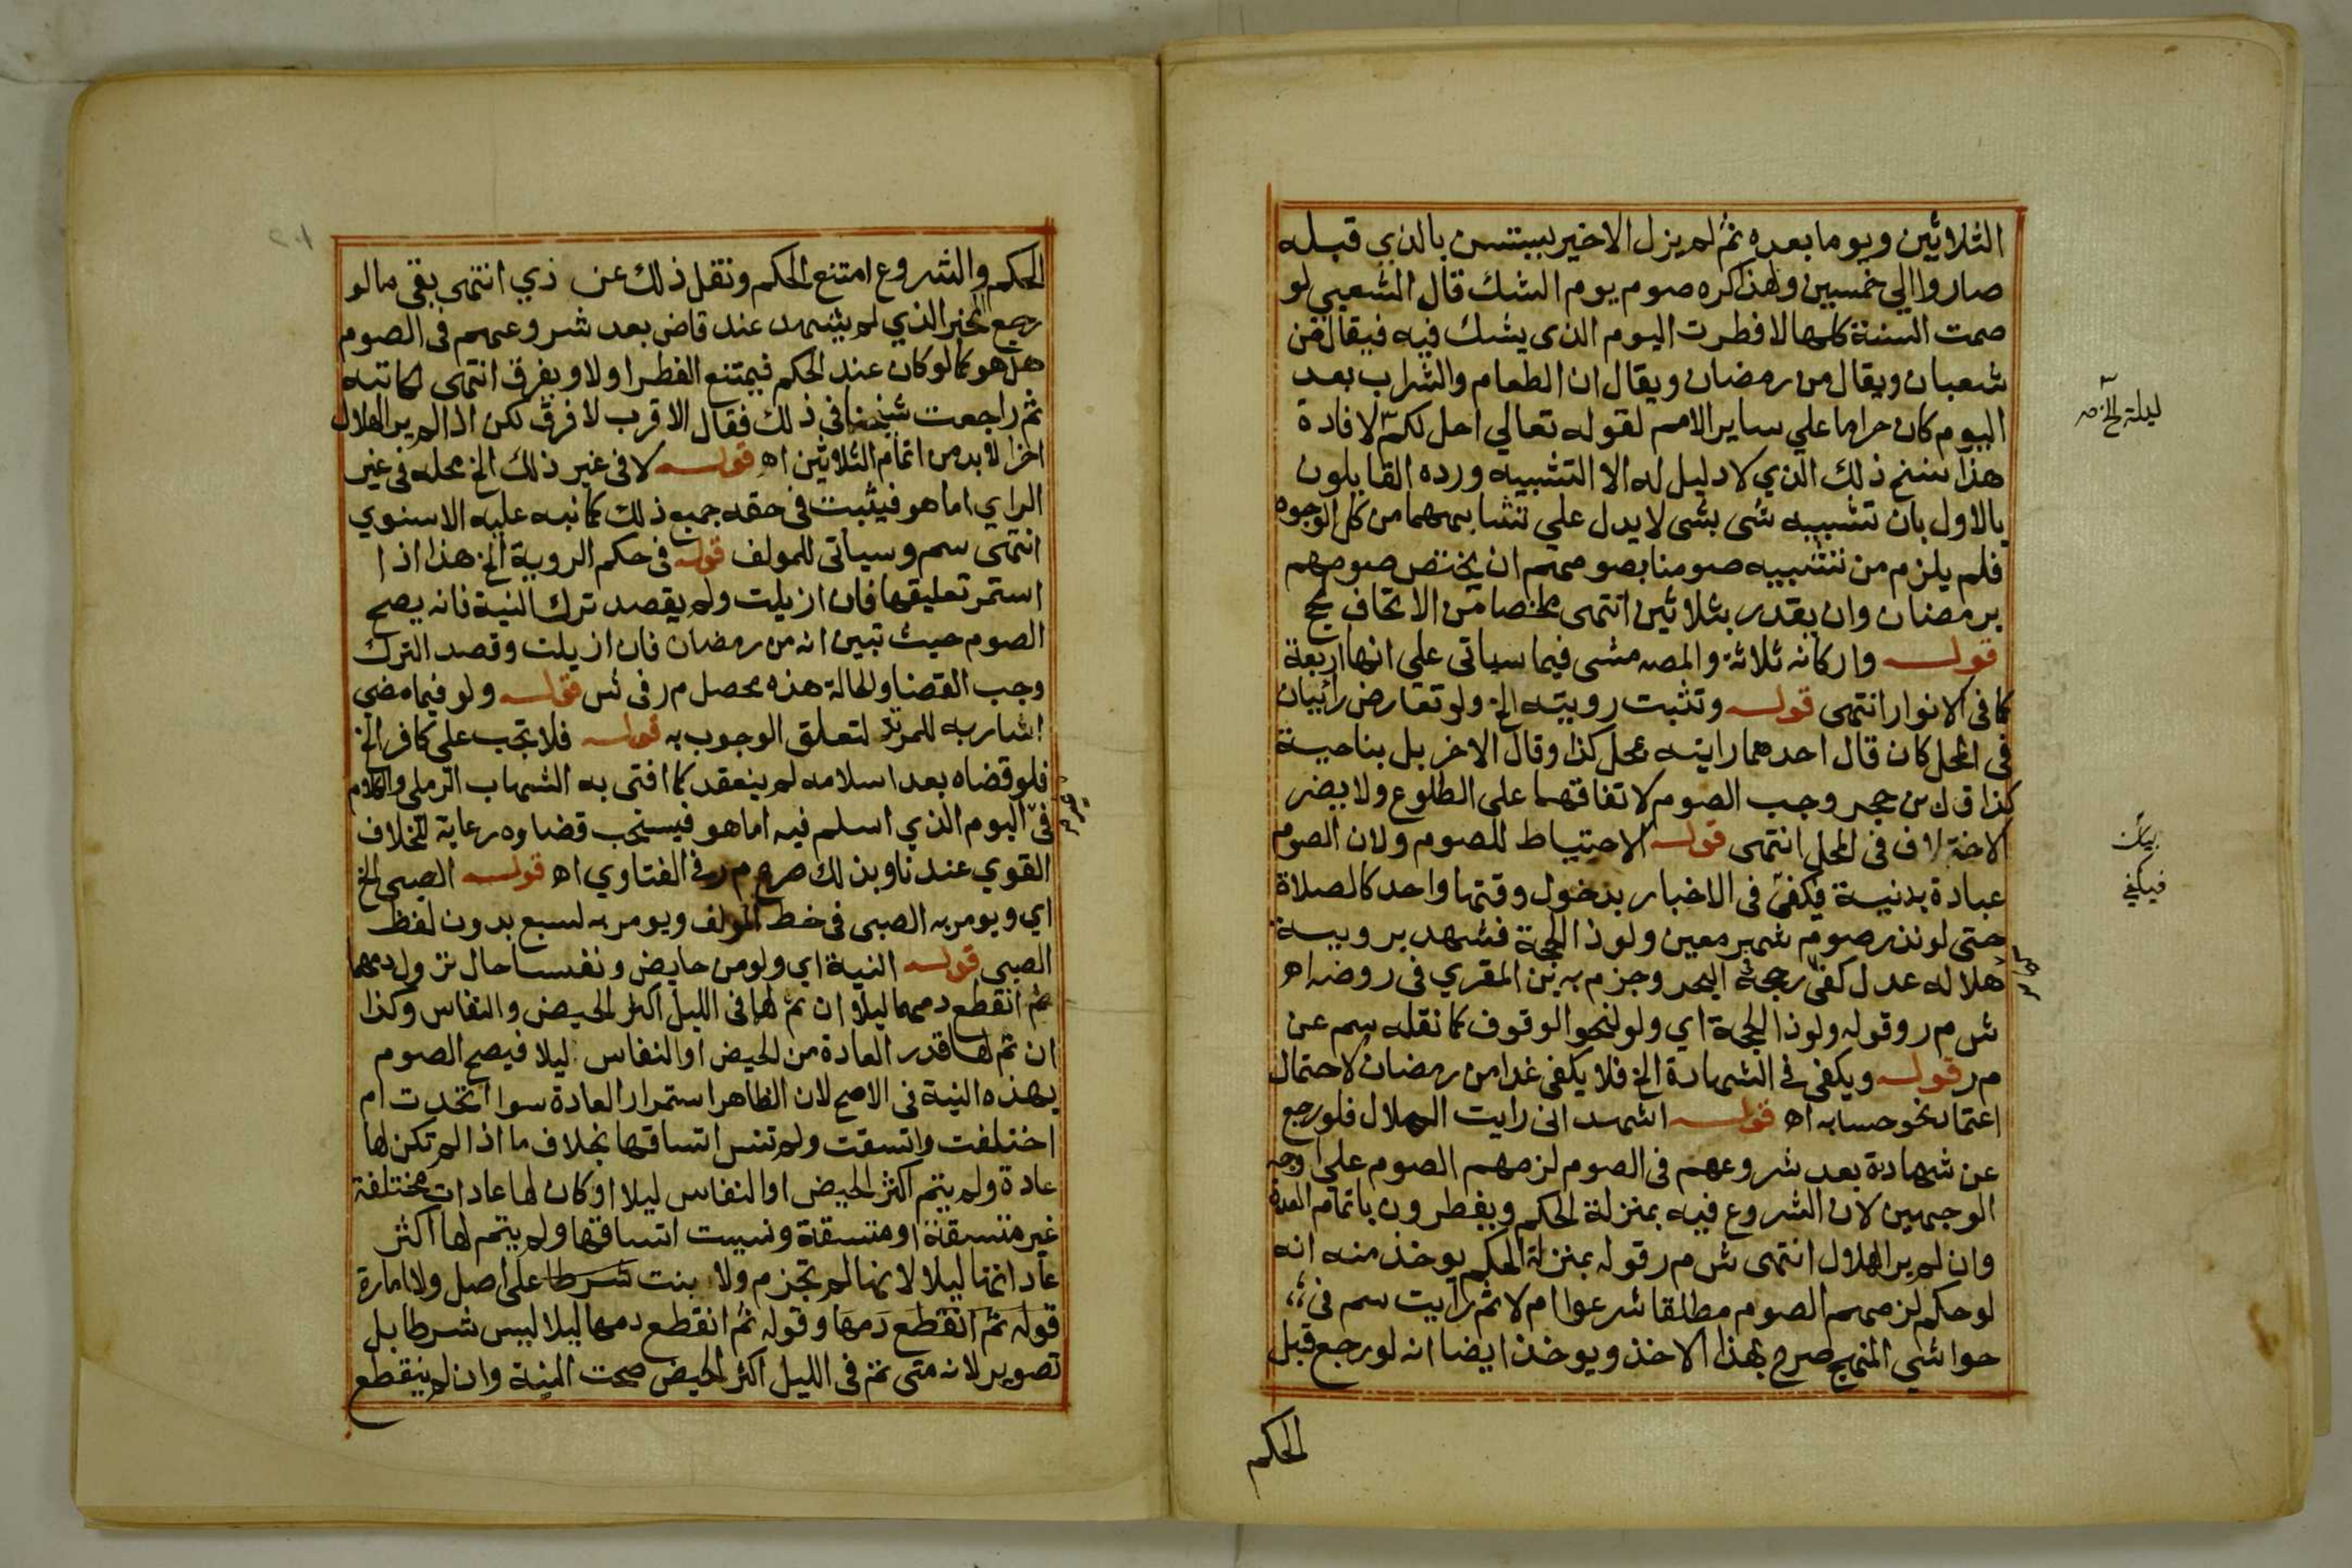 الثلاثين ويوما بعده ثم لم يزل الاخير يستسن بالذي قبله
صاروا الي خمسين ولهذا كره صوم يوم الشك قال الشعبي لو
صمت السنة كلها لافطرت اليوم الذي يشك فيه فيقال من
شعبان ويقال من رمضان ويقال ان الطعام والشراب بعد
اليوم كان حراما علي ساير الامم لقوله تعالي احل لكم لافادة
ليلة الخ صح
هذا نسخ ذلك الذي لا دليل له الا التشبيه ورده القايلون
بالاول بان تشبيه شي بشي لا يدل علي تشابههما من كل الوجوه
فلم يلزم من تشبيه صومنا بصومهم ان يختص صومهم
برمضان وان يقدر بثلاثين انتهى ملخصا من الاتحاف لحج
قوله واركانه ثلاثة والمصه مشى فيما سياتى على انها اربعة
كما فى الانوار انتهى قوله وتثبت رويته الخ ولو تعارض رائيان
فى المحل كان قال احدهما رايته بمحل كذا وقال الاخر بل بناحية
كذا قال بن حجر وجب الصوم لاتفاقهما على الطلوع ولا يضر
الاختلاف فى المحل انتهى قوله الاحتياط للصوم ولان الصوم
بيان
عبادة بدنية فيكفى فى الاخبار بدخول وقتها واحد كالصلاة
فيكفي
حتى لو نذر صوم شهر معين ولو ذا الحجة فشهد بروية
هلاله عدل كفى رجحه البحر وجزم به بن المقري فى روضه اه
ش م ر وقوله ولو ذا الحجة اي ولو لنحو الوقوف كما نقله سم عن
م ر قوله ويكفى فى الشهادة الخ فلا يكفى غدا من رمضان لاحتمال
اعتماد نحو حسابه اه قوله اشهد انى رايت الهلال فلو رجع
عن شهادة بعد شروعهم فى الصوم لزمهم الصوم على اوجه
الوجهين لان الشروع فيه بمنزلة الحكم ويفطرون باتمام العدة
وان لم ير الهلال انتهى ش م ر قوله بمنزلة الحكم يوخذ منه انه
لو حكم لزمهم الصوم مطلقا شرعوا ام لا ثم رايت سم فى
حواشي المنهج صرح بهذا الاخذ ويوخذ ايضا انه لو رجع قبل
الحكم
الحكم والشروع امتنع الحكم ونقل ذلك عن ذي انتهى بقى ما لو
رجع المخبر الذي لم يشهد عند قاض بعد شروعهم فى الصوم
هل هو كما لو كان عند الحكم فيمتنع الفطر اولا ويفرق انتهى لكاتبه
ثم راجعت شيخنا فى ذلك فقال الاقرب لا فرق لكن اذا لم ير الهلال
اخرا لا بد من اتمام الثلاثين اه قوله لا فى غير ذلك الخ محله فى غير
الراي اما هو فيثبت فى حقه جميع ذلك كما نبه عليه الاسنوي
انتهى سم وسياتى للمولف قوله فى حكم الروية الخ هذا اذا
استمر تعليقها فان ازيلت ولم يقصد ترك النية فانه يصح
الصوم حيث تبين انه من رمضان فان ازيلت وقصد الترك
وجب القضا والحالة هذه محصل م ر فى ش قوله ولو فيما مضى
اشار به للمرتد لتعلق الوجوب به قوله فلا تجب على كافر الخ
فلو قضاه بعد اسلامه لم ينعقد كما افتى به الشهاب الرملي والكلام
فى اليوم الذي اسلم فيه اما هو فيستحب قضاوه رعاية للخلاف
القوي عندنا وبذلك صرح م ر فى الفتاوي اه قوله الصبى الخ
اي ويومر به الصبى فى خط المولف ويومر به لسبع بدون لفظ
الصبى قوله النية اي ولو من حايض ونفسا حال نزول دمهما
ثم انقطع دمهما ليلا وان تم لهما فى الليل اكثر الحيض والنفاس وكذا
ان تم لها قدر العادة من الحيض او النفاس ليلا فيصح الصوم
بهذه النية فى الاصح لان الظاهر استمرار العادة سوا اتحدت ام
اختلفت واتسقت ولم تنس اتساقها بخلاف ما اذا لم تكن لها
عادة ولم يتم اكثر الحيض او النفاس ليلا او كان لها عادات مختلفة
غير متسقة او متسقة ونسيت اتساقها ولم يتم لها اكثر
عاداتها ليلا لانها لم تجزم ولا بنت شرطا على اصل ولا امارة
قوله ثم انقطع دمها وقوله ثم انقطع دمها ليلا ليس شرطا بل
تصوير لانه متى تم فى الليل اكثر الحيض صحت النية وان لم ينقطع